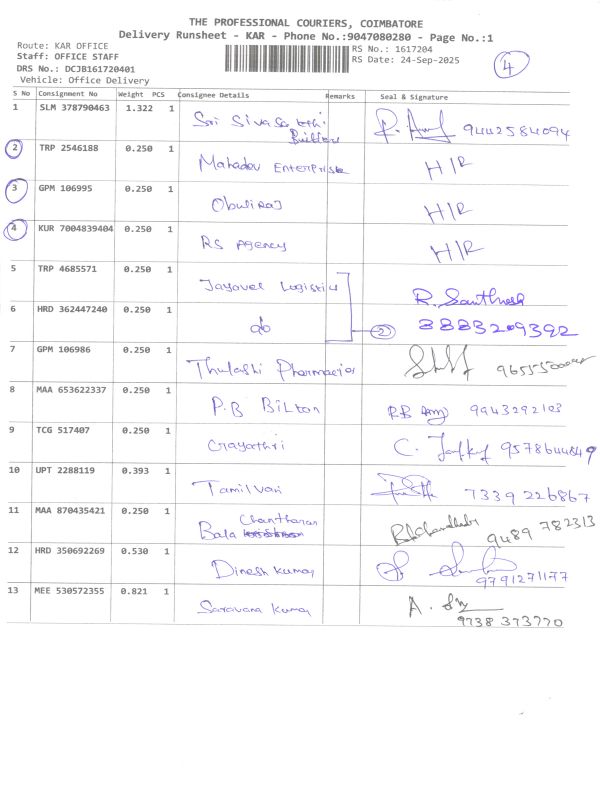 THE PROFESSIONAL COURIERS, COIMBATORE
Delivery Runsheet - KAR - Phone No.:9047080280 - Page No.:1
Route: KAR OFFICE
RS No.: 1617204
Staff: OFFICE STAFF
RS Date: 24-Sep-2025
4
DRS No.: DCJB161720401
Vehicle: Office Delivery
S No Consignment No Weight PCS Consignee Details Remarks Seal & Signature
1 SLM 378790463 1.322 1 Sri Sivasakthi 9442584094
Builders
2 TRP 2546188 0.250 1 Mahadev Enterprise H/R
3 GPM 106995 0.250 1 Obuliraj H/R
4 KUR 7004839404 0.250 1 RS Agency H/R
5 TRP 4685571 0.250 1 Jayavel Logistics R. Santhosh
6 HRD 362447240 0.250 1 do 2 8883209392
7 GPM 106986 0.250 1 Thulashi Pharmacies
8 MAA 653622337 0.250 1 P.B Bilton 9943292103
9 TCG 517407 0.250 1 Gayathri C. 9578644849
10 UPT 2288119 0.393 1 Tamilvani 7339 226867
11 MAA 870435421 0.250 1 Chantharan
Bala 9489 782313
12 HRD 350692269 0.530 1 Dinesh Kumar 9791271177
13 MEE 530572355 0.821 1 Saravana Kumar A.
9738 373770